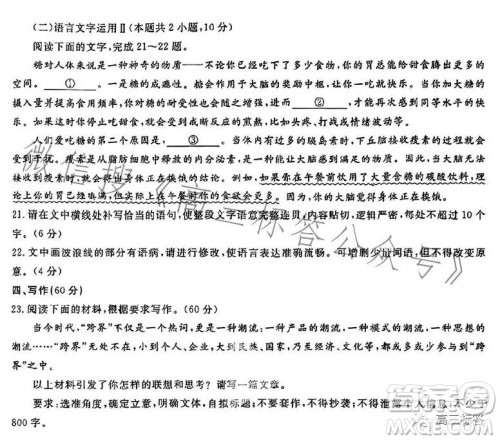 (二)语言文字运用Ⅱ(本题共2小题,10分)
阅读下面的文字,完成21~22题。
糖对人体来说是一种大脑奖励——不论你已经吃下了多少食物,你的胃总能给甜食腾出更多的
空间。 ① 一是糖的成瘾性。糖会作用于大脑的奖励中枢,让你感到愉快,但随着糖的
摄入量和进食频率增加,你对糖的耐受性也会随之增强,进而 ② ,才能体会到同等水平的快
乐。从成瘾反应的周期来看,突然停止吃甜食,也可能会出现戒断反应,打战或者情绪波动。
人们爱吃糖的第二个原因是, ③ 。当体内产生了过多的胰岛素时,下丘脑接收机制就会受
到干扰。瘦素从脂肪细胞中释放出来,与大脑沟通,告知大脑已经摄入足够的食物,而大脑却无法
接收到脂肪细胞“已经吃饱了”的通知。例如,如果你在午餐前饮用了大量含糖的碳酸饮料,理
论上你的胃已经饱和,但实际上在午餐时你的食欲会更多。因为,你的大脑觉得身体正在挨饿。
21.请在文中横线处补写恰当的语句,使整段文字语意完整连贯,内容贴切,逻辑严密,每处不超过10个
字。(6分)
22.文中画波浪线的部分有语病,请进行修改,使语言表达准确流畅。可增删少量词语,但不得改变原
意。(4分)
四、写作(60分)
23.阅读下面的材料,根据要求写作。(60分)
当今时代,“跨界”不仅是一个热词,更是一种潮流:一种产品的潮流,一种模式的潮流,一种思想的
潮流……“跨界”无处不在,小到个人、企业,大到民族、国家,乃至经济、文化、艺术等,都处于一片“跨
界”之中。
以上材料引发了你怎样的联想和思考?请写一篇文章。
要求:选准角度,确定立意,明确文体,自拟标题;不要套作,不得抄袭;不得泄露个人信息;不少于
800字。
微信搜《高三标答公众号》
高三标答